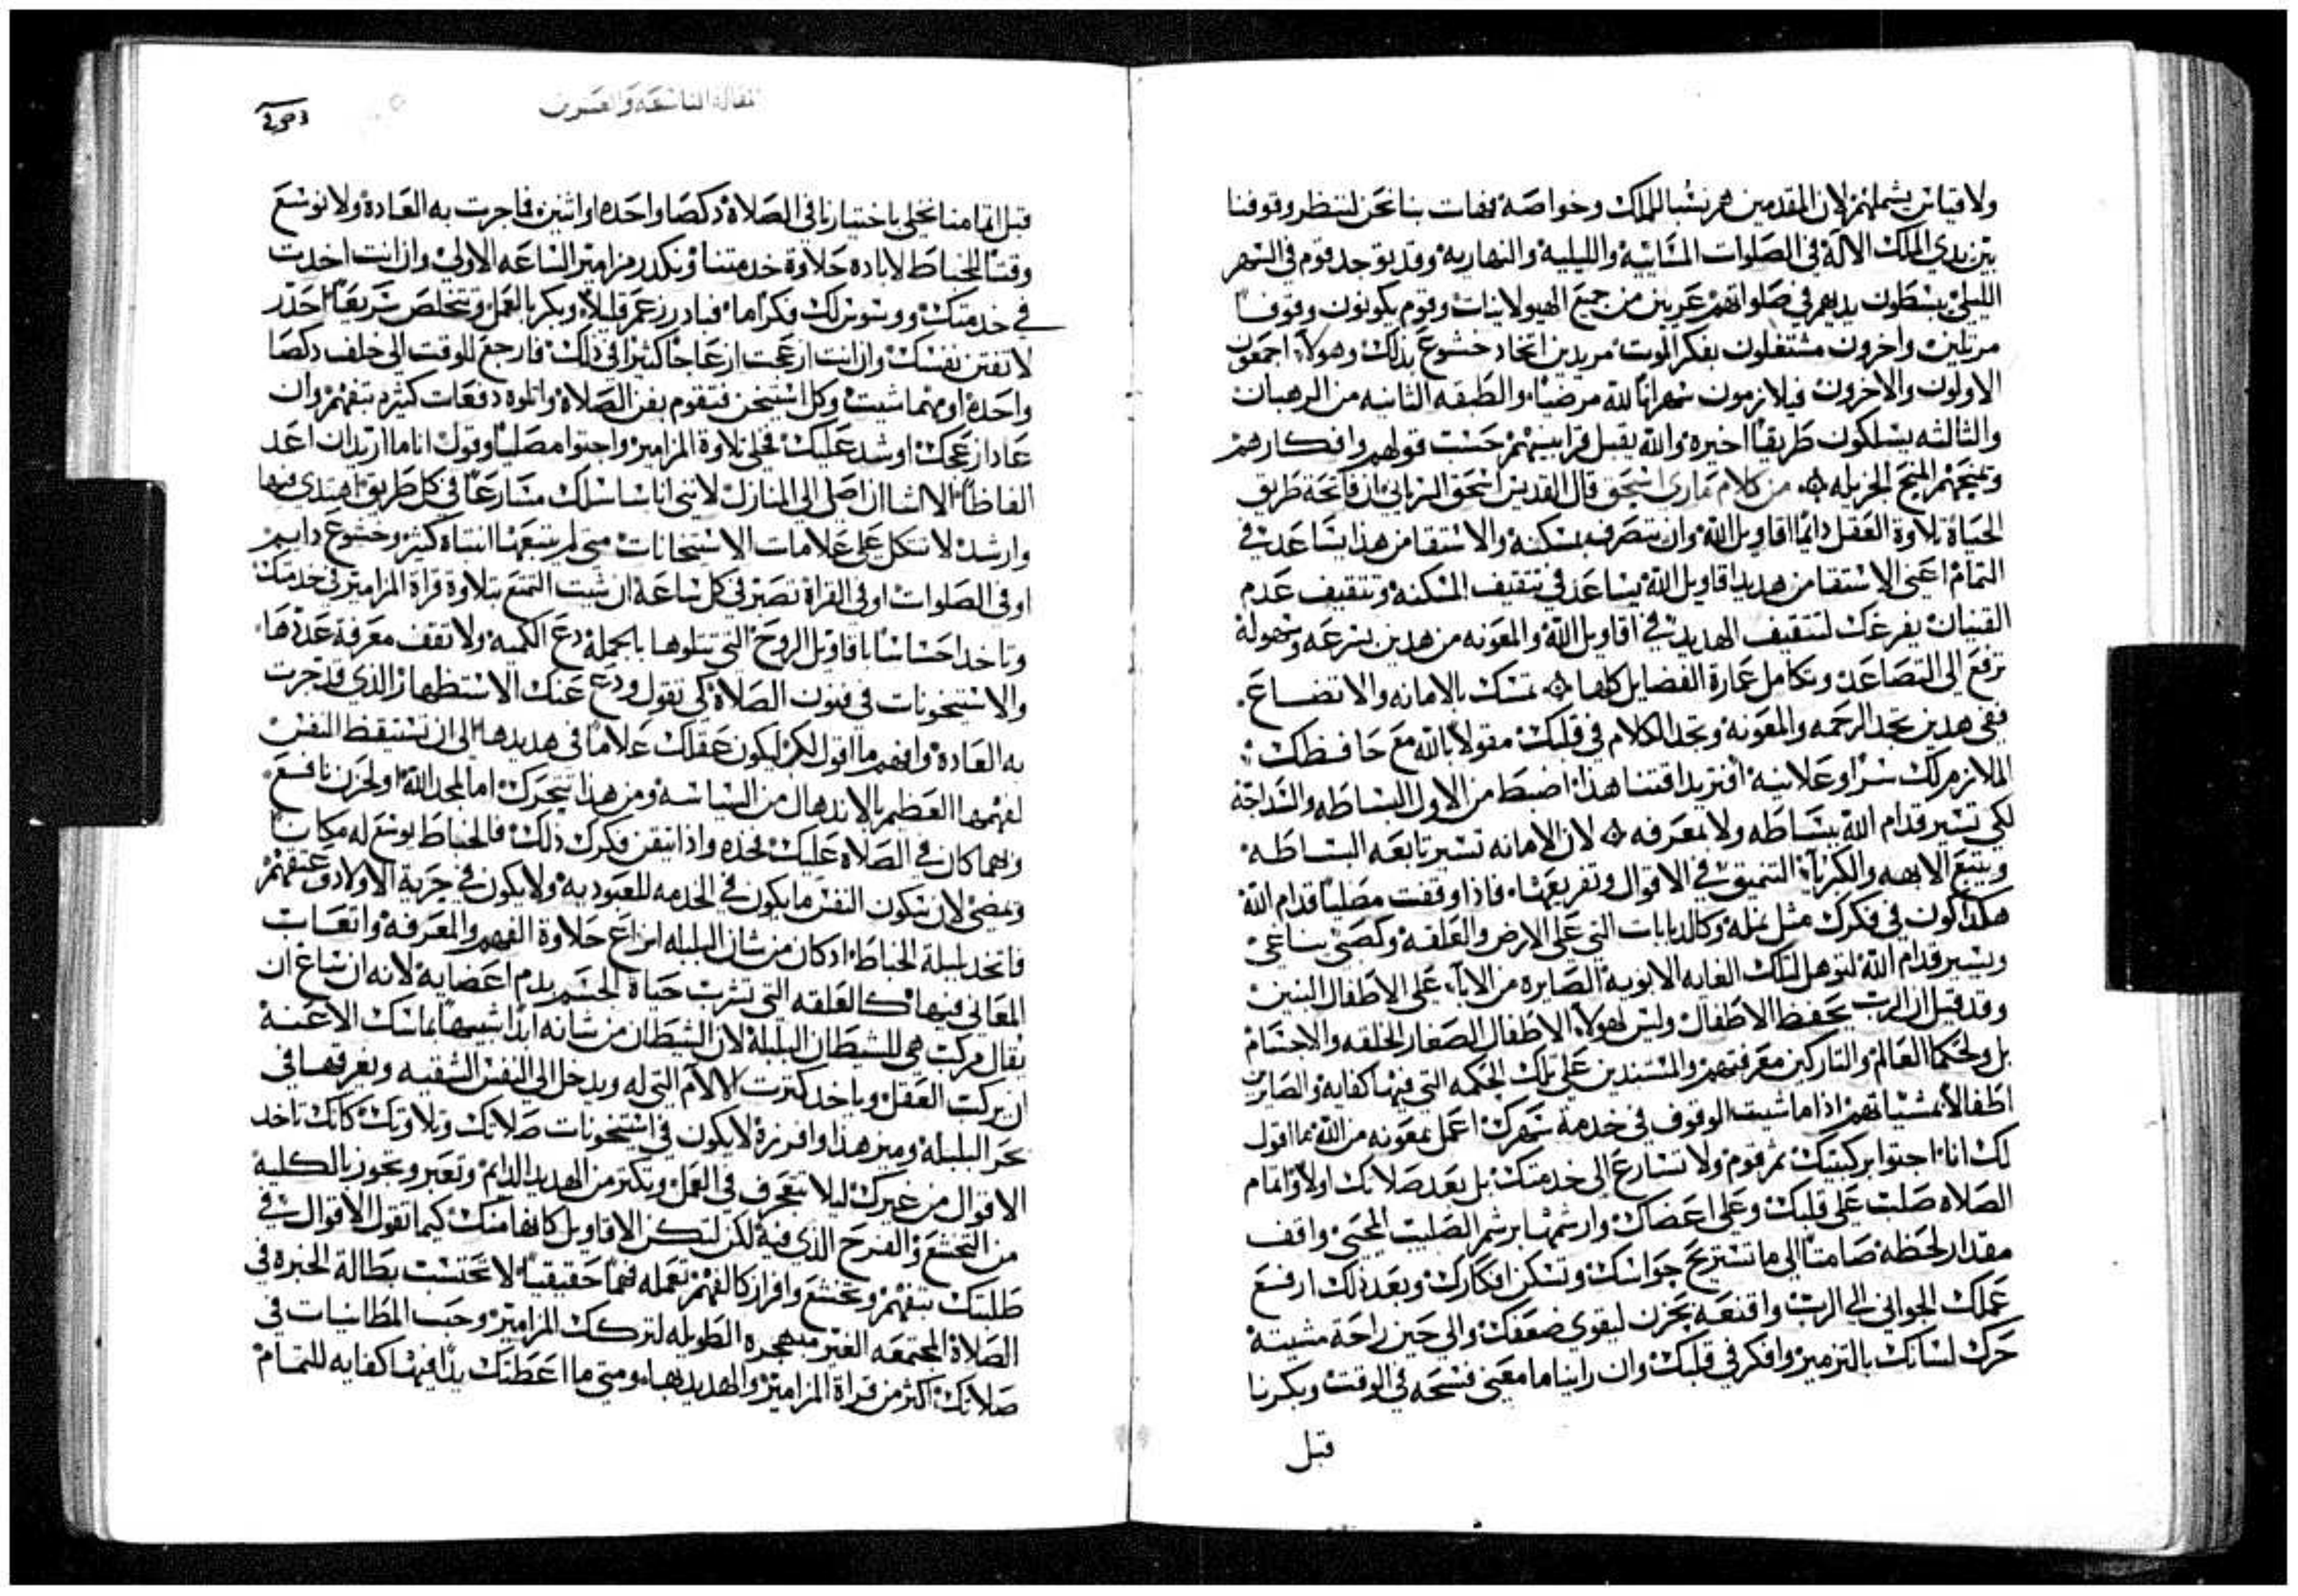 ولا قياس يشملهم لان المقدمين هم نسبا للملك وخواصه فهات بنا نحن لننظر وقوفنا
بين يدي الملك الاله في الصلوات المسَايية والليلية والنهارية وقد يوجد قوم في السهر
الليلي يبسطون يديهم في صلواتهم عَريين من جميع الهيولانيات وقوم يكونون وقوفا
مرتلين واخرون مشتغلون بفكر الموت مريدين اتخاد خشوع بذلك وهولاء اجمعون
الاولون والاخرون فيلازمون سهرانا لله مرضيا والطبقه الثانيه من الرهبان
والثالثه يسلكون طريقا اخيره والله يقبل قرابينهم حسب قولهم وافكارهم
ويمنحهم المنح الجزيله من كلام ماري اسحق قال القديس اسحق السرياني ان فاتحة طريق
الحياة تلاوة العقل دايما اقاويل الله وان يتصرف بمسكنة والاستقا من هذا يساعد في
التمام اعني الاستقا من هديد اقاويل الله يساعد في تثقيف المسكنه وتثقيف عدم
القنيان يفرغك لتثقيف الهديد في اقاويل الله والمعونه من هدين بسرعه وسهولة
ترفع الى التصاعد وتكامل عمارة الفضايل كلها تمسك بالامانه والاتضاع
ففي هدين تجد الرحمه والمعونه وتجد الكلام في قلبك مقولا بالله مع حافظك
الملازم لك سرا وعلانية افتريد اقتنا هذا اضبط من الاول البساطه والسداجة
لكي تسير قدام الله ببساطه ولا بمعرفه لان الامانه تسير تابعه البساطه
ويتبع الابهه والكبريا التنميق في الاقوال وتفريعها فاذا وقفت مصليا قدام الله
هكدا كون في فكرك مثل نمله وكالدبابات التي على الارض والعلقه وكصبي يناغي
ويسير قدام الله لتوهل لتلك العنايه الابويه الصايره من الآباء على الاطفال البنين
وقد قيل ان الرب يحفظ الاطفال وليس لهولاء الاطفال الصغار الخلقه والاجسام
بل ولحكما العالم والتاركين معرفتهم والمستندين على تلك الحكمه التي فيها كفاية والصايرين
اطفالا بمشياتهم اذا ما شيت الوقوف في خدمة سهرك اعمل بمعونه من الله بما اقول
لك انا اجثوا بركبتيك ثم قوم ولا تسارع الى خدمتك بل بعد صلاتك اولا واتمام
الصلاه صلب على قلبك وعلى اعضاك وارشمها برشم الصليب المحيي واقف
مقدار لحظة صامتا الى ما تستريح حواسك وتسكن افكارك وبعد ذلك ارفع
عملك الجواني الى الرب واقنعه بحزن ليقوي ضعفك والى حين راحة مشيته
حرك لسانك بالترمير وافكر في قلبك وان راينا ما معني فسحه في الوقت وبكرنا
قبل
المقالة التاسعة والعشرين
قبل اتمامنا نخلي باختيارنا في الصلاة دكصا واحده او اثنين فاجرت به العادة ولا نوسع
وقتا للخباط لابادة حلاوة خدمتنا ونكدر مزامير الساعه الاولى وان انت اخدت
في خدمتك ووسوس لك فكرا ما فبادر زعم قليلا وبكر بالعمل وتتخلص سريعا احدر
لا تفتن نفسك وان انت ازعجت ازعاجا كثيرا في ذلك فارجع للوقت الى خلف دكصا
واحدة او مهما شيت وكل استيخن فتقوم بفن الصلاة واتلوه دفعات كثيره بتفهم وان
عاد ازعجك او شد عليك فخلي تلاوة المزامير واجثوا مصليا وقول انا ما اريد ان اعد
الفاظا الا اشا ان اصل الى المنازل لانني انا ساسلك مسارعا في كل طريق اهتدي فيها
وارشد لا تتكل على علامات الاستيخانات متى لم يتبعها انتباه كثير وخشوع دايم
او في الصلوات او في القراة تصير في كل ساعة ان شيت التمتع بتلاوة قراة المزامير في خدمتك
وتاخد احساسا باقاويل الروح التي تتلوها بالجمله دع الكميه ولا تقف معرفة عددها
والاستيخونات في فنون الصلاة كي تقول ودع عنك الاستظهار الذي قد جرت
به العادة وافهم ما اقول لك ليكون عقلك علاما في هديدها الى ان تستيقظ النفس
لفهمها العظيم بالاندهال من السياسه ومن هذا تتحرك اما لمجد الله او لحزن نافع
ومهما كان في الصلاة عليك فخده واذا اتيقن فكرك ذلك فالخباط يوسع له مكانا
ويمضي لان سكون النفس ما يكون في الخدمه للعبوديه ولا يكون في حرية الاولاد وعتقهم
فاتخد لبلبلة الخباط اد كان من شان البلبله انزاع حلاوة الفهم والمعرفة واتعاب
المعاني فيها كالعلقه التي تشرب حياة الجسم بدم اعضايه لانه ان ساغ ان
يقال مركب هي للشيطان البلبلة لان الشيطان من شانه ابدا شبيها بماسك الاعنة
ان يركب العقل وياخد كترت الالام التي له ويدخل الى النفس الشقيه ويغرقها في
بحر البلبله وميز هذا وافرزه لا يكون في استيخونات صلاتك وتلاوتك كانك تاخد
الاقوال من غيرك ليلا تتعجرف في العمل وتكتر من الهديد الدايم وتعبر وتجوز بالكلية
من التخشع والفرح الذي فيه لكن لتكن الاقاويل كانها منك كيما تقول الاقوال في
طلبتك بتفهم وتخشع وافراز كالفهم تعمله فهما حقيقيا لا تحتسب بطالة الحيره في
الصلاة المجتمعه الغير مبهجره الطويله لتركك المزامير وحب المطانيات في
صلاتك اكثر من قراة المزامير والهديد بها ومتى ما اعطتك يدا فيها كفايه للتمام